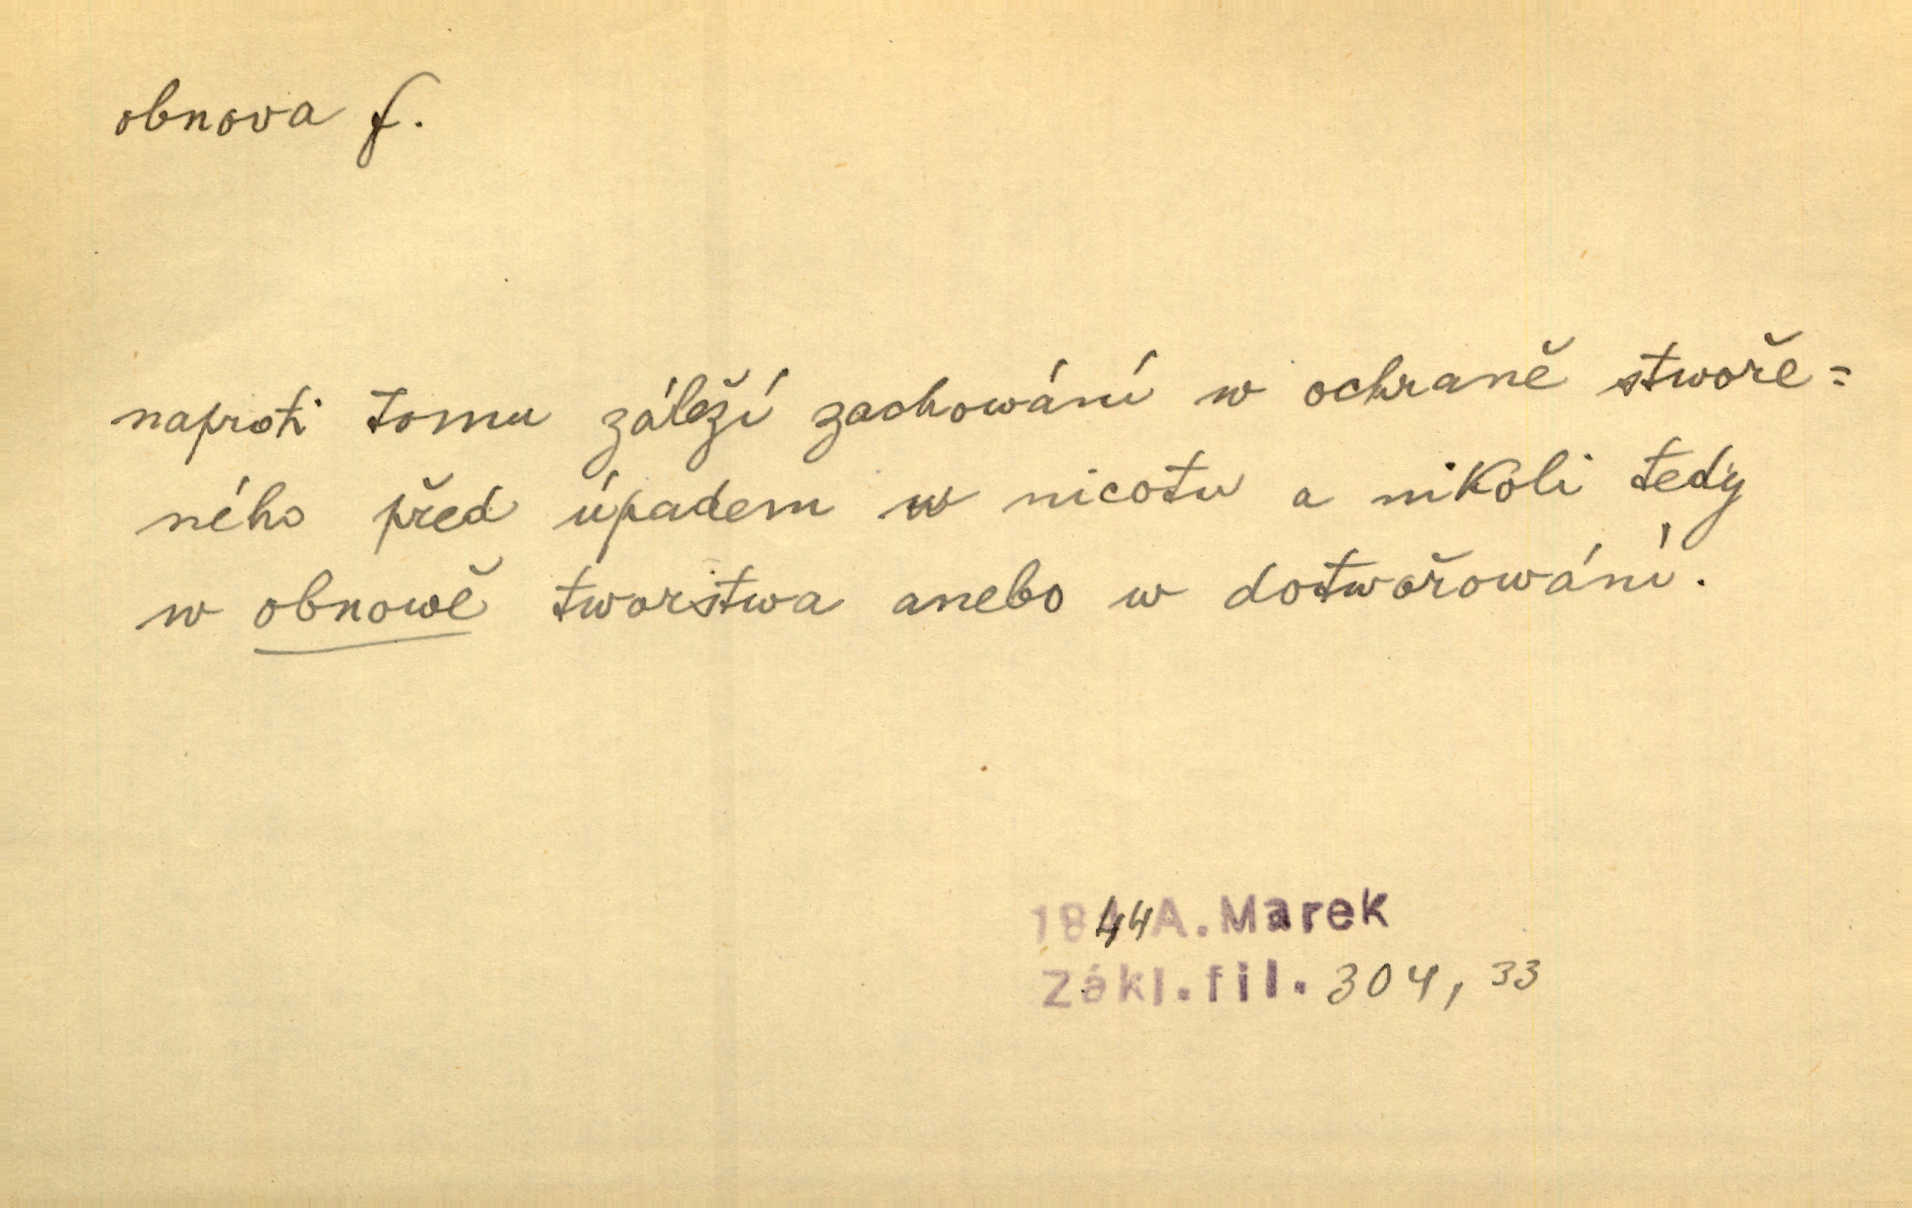 obnova f.
naproti tomu záleží zachowání w ochraně stwoře=
ného před úpadem w nicotu a nikoli tedy
w obnowě tworstwa anebo w dotwořowání.
1844 A. Marek
Zákl. fil. 304, 33